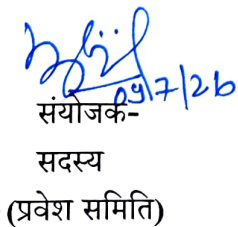 09/7/26
संयोजक-
सदस्य
(प्रवेश समिति)